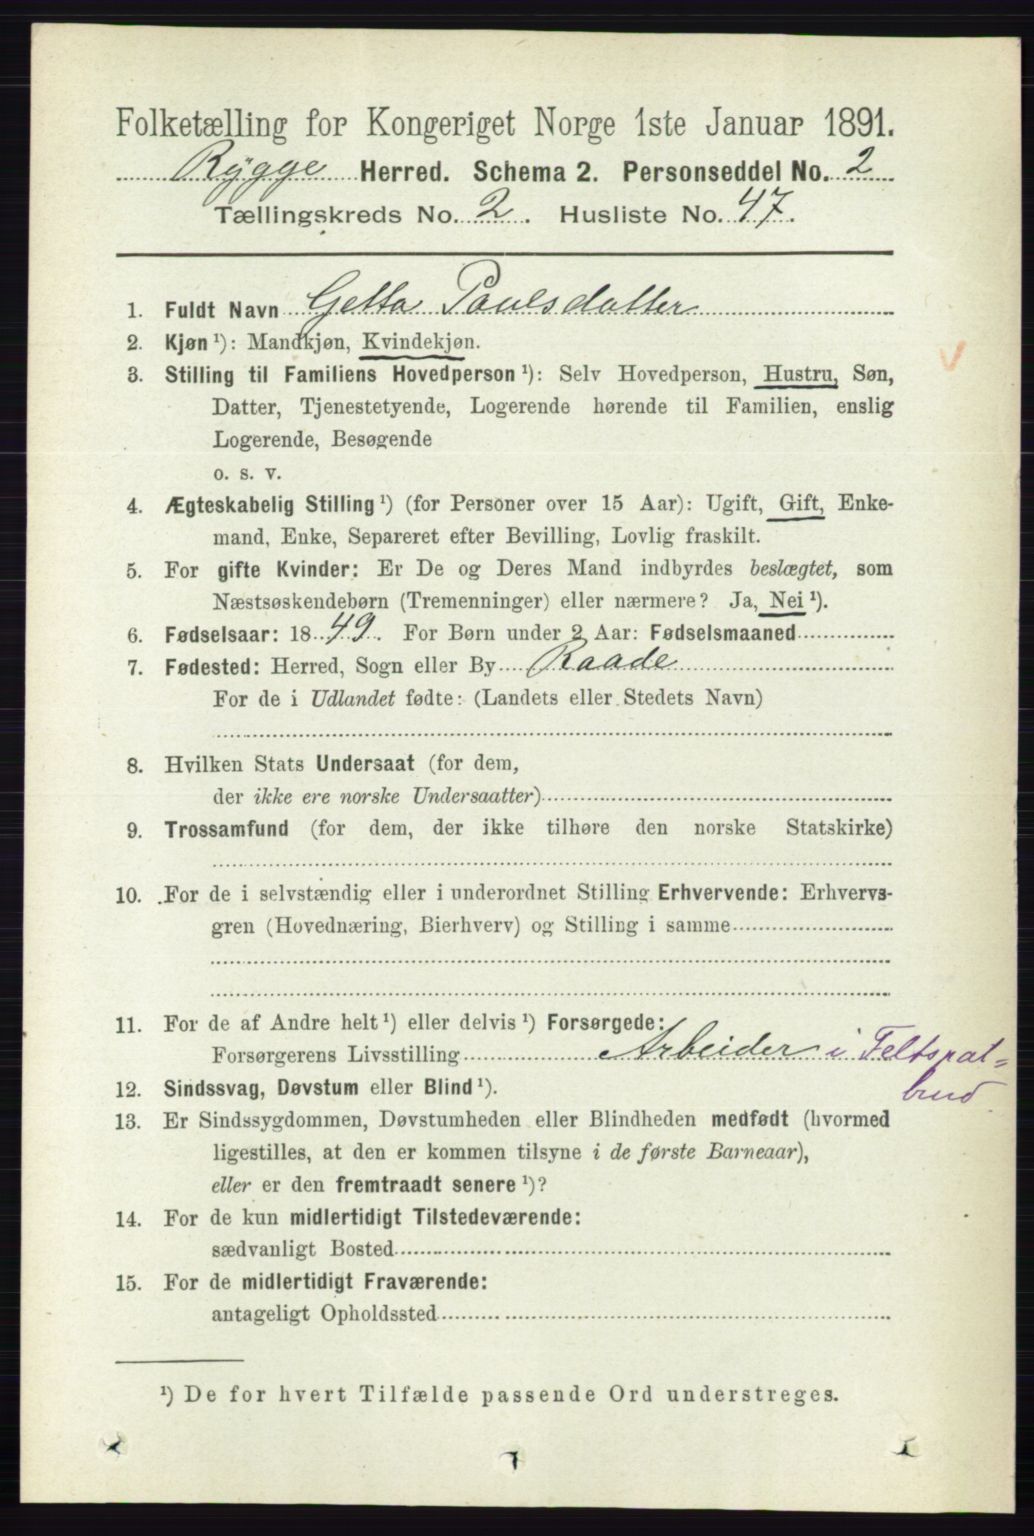 Folketælling for Kongeriget Norge 1ste Januar 1891.
Rygge Herred. Schema 2. Personseddel No. 2
Tællingskreds No. 2. Husliste No. 47.
1. Fuldt Navn Getta Paulsdatter
2. Kjøn ¹): Mandkjøn, Kvindekjøn.
3. Stilling til Familiens Hovedperson ¹): Selv Hovedperson, Hustru, Søn,
Datter, Tjenestetyende, Logerende hørende til Familien, enslig
Logerende, Besøgende
o. s. v.
4. Ægteskabelig Stilling ¹) (for Personer over 15 Aar): Ugift, Gift, Enke-
mand, Enke, Separeret efter Bevilling, Lovlig fraskilt.
5. For gifte Kvinder: Er De og Deres Mand indbyrdes beslægtet, som
Næstsøskendebørn (Tremenninger) eller nærmere? Ja, Nei ¹).
6. Fødselsaar: 1849. For Børn under 2 Aar: Fødselsmaaned
7. Fødested: Herred, Sogn eller By Raade
For de i Udlandet fødte: (Landets eller Stedets Navn)
8. Hvilken Stats Undersaat (for dem,
der ikke ere norske Undersaatter)
9. Trossamfund (for dem, der ikke tilhøre den norske Statskirke)
10. For de i selvstændig eller i underordnet Stilling Erhvervende: Erhvervs-
gren (Hovednæring, Bierhverv) og Stilling i samme
11. For de af Andre helt ¹) eller delvis ¹) Forsørgede:
Forsørgerens Livsstilling Arbeider i Feltspat=
brud
12. Sindssvag, Døvstum eller Blind ¹).
13. Er Sindssygdommen, Døvstumheden eller Blindheden medfødt (hvormed
ligestilles, at den er kommen tilsyne i de første Barneaar),
eller er den fremtraadt senere ¹)?
14. For de kun midlertidigt Tilstedeværende:
sædvanligt Bosted
15. For de midlertidigt Fraværende:
antageligt Opholdssted
¹) De for hvert Tilfælde passende Ord understreges.